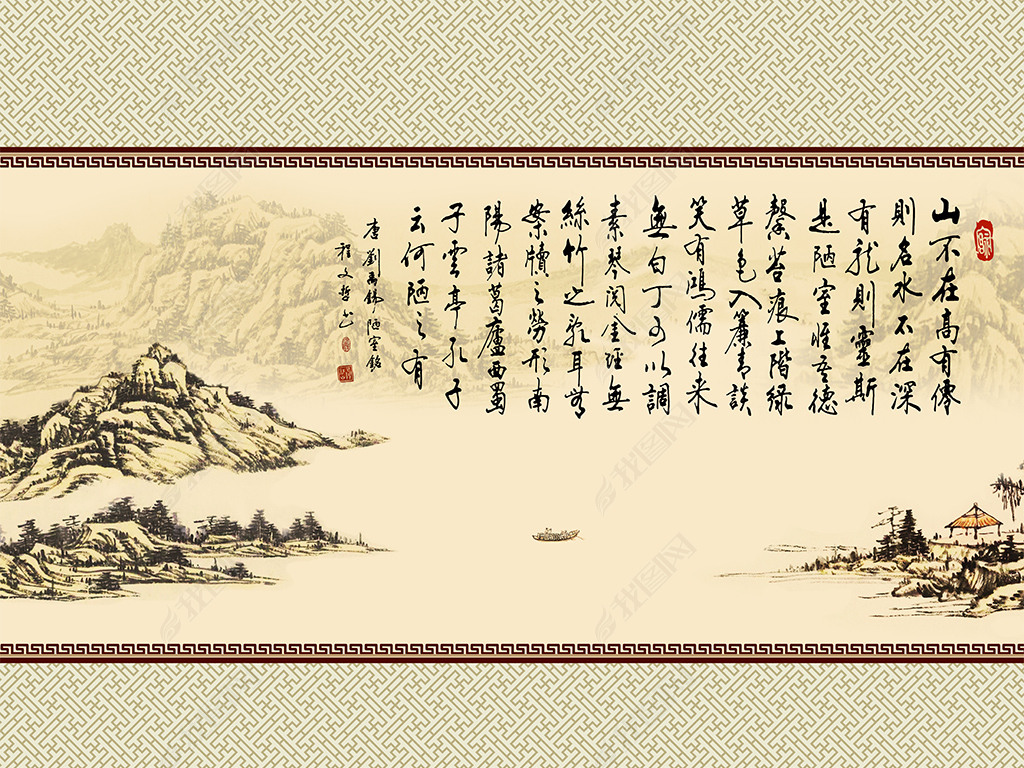 山不在高有僊
則名水不在深
有龍則靈斯
是陋室惟吾德
馨苔痕上階綠
草色入簾青談
笑有鴻儒往來
無白丁可以調
素琴閱金經無
絲竹之亂耳無
案牘之勞形南
陽諸葛廬西蜀
子雲亭孔子
云何陋之有
唐劉禹錫陋室銘
程文哲书
找图网